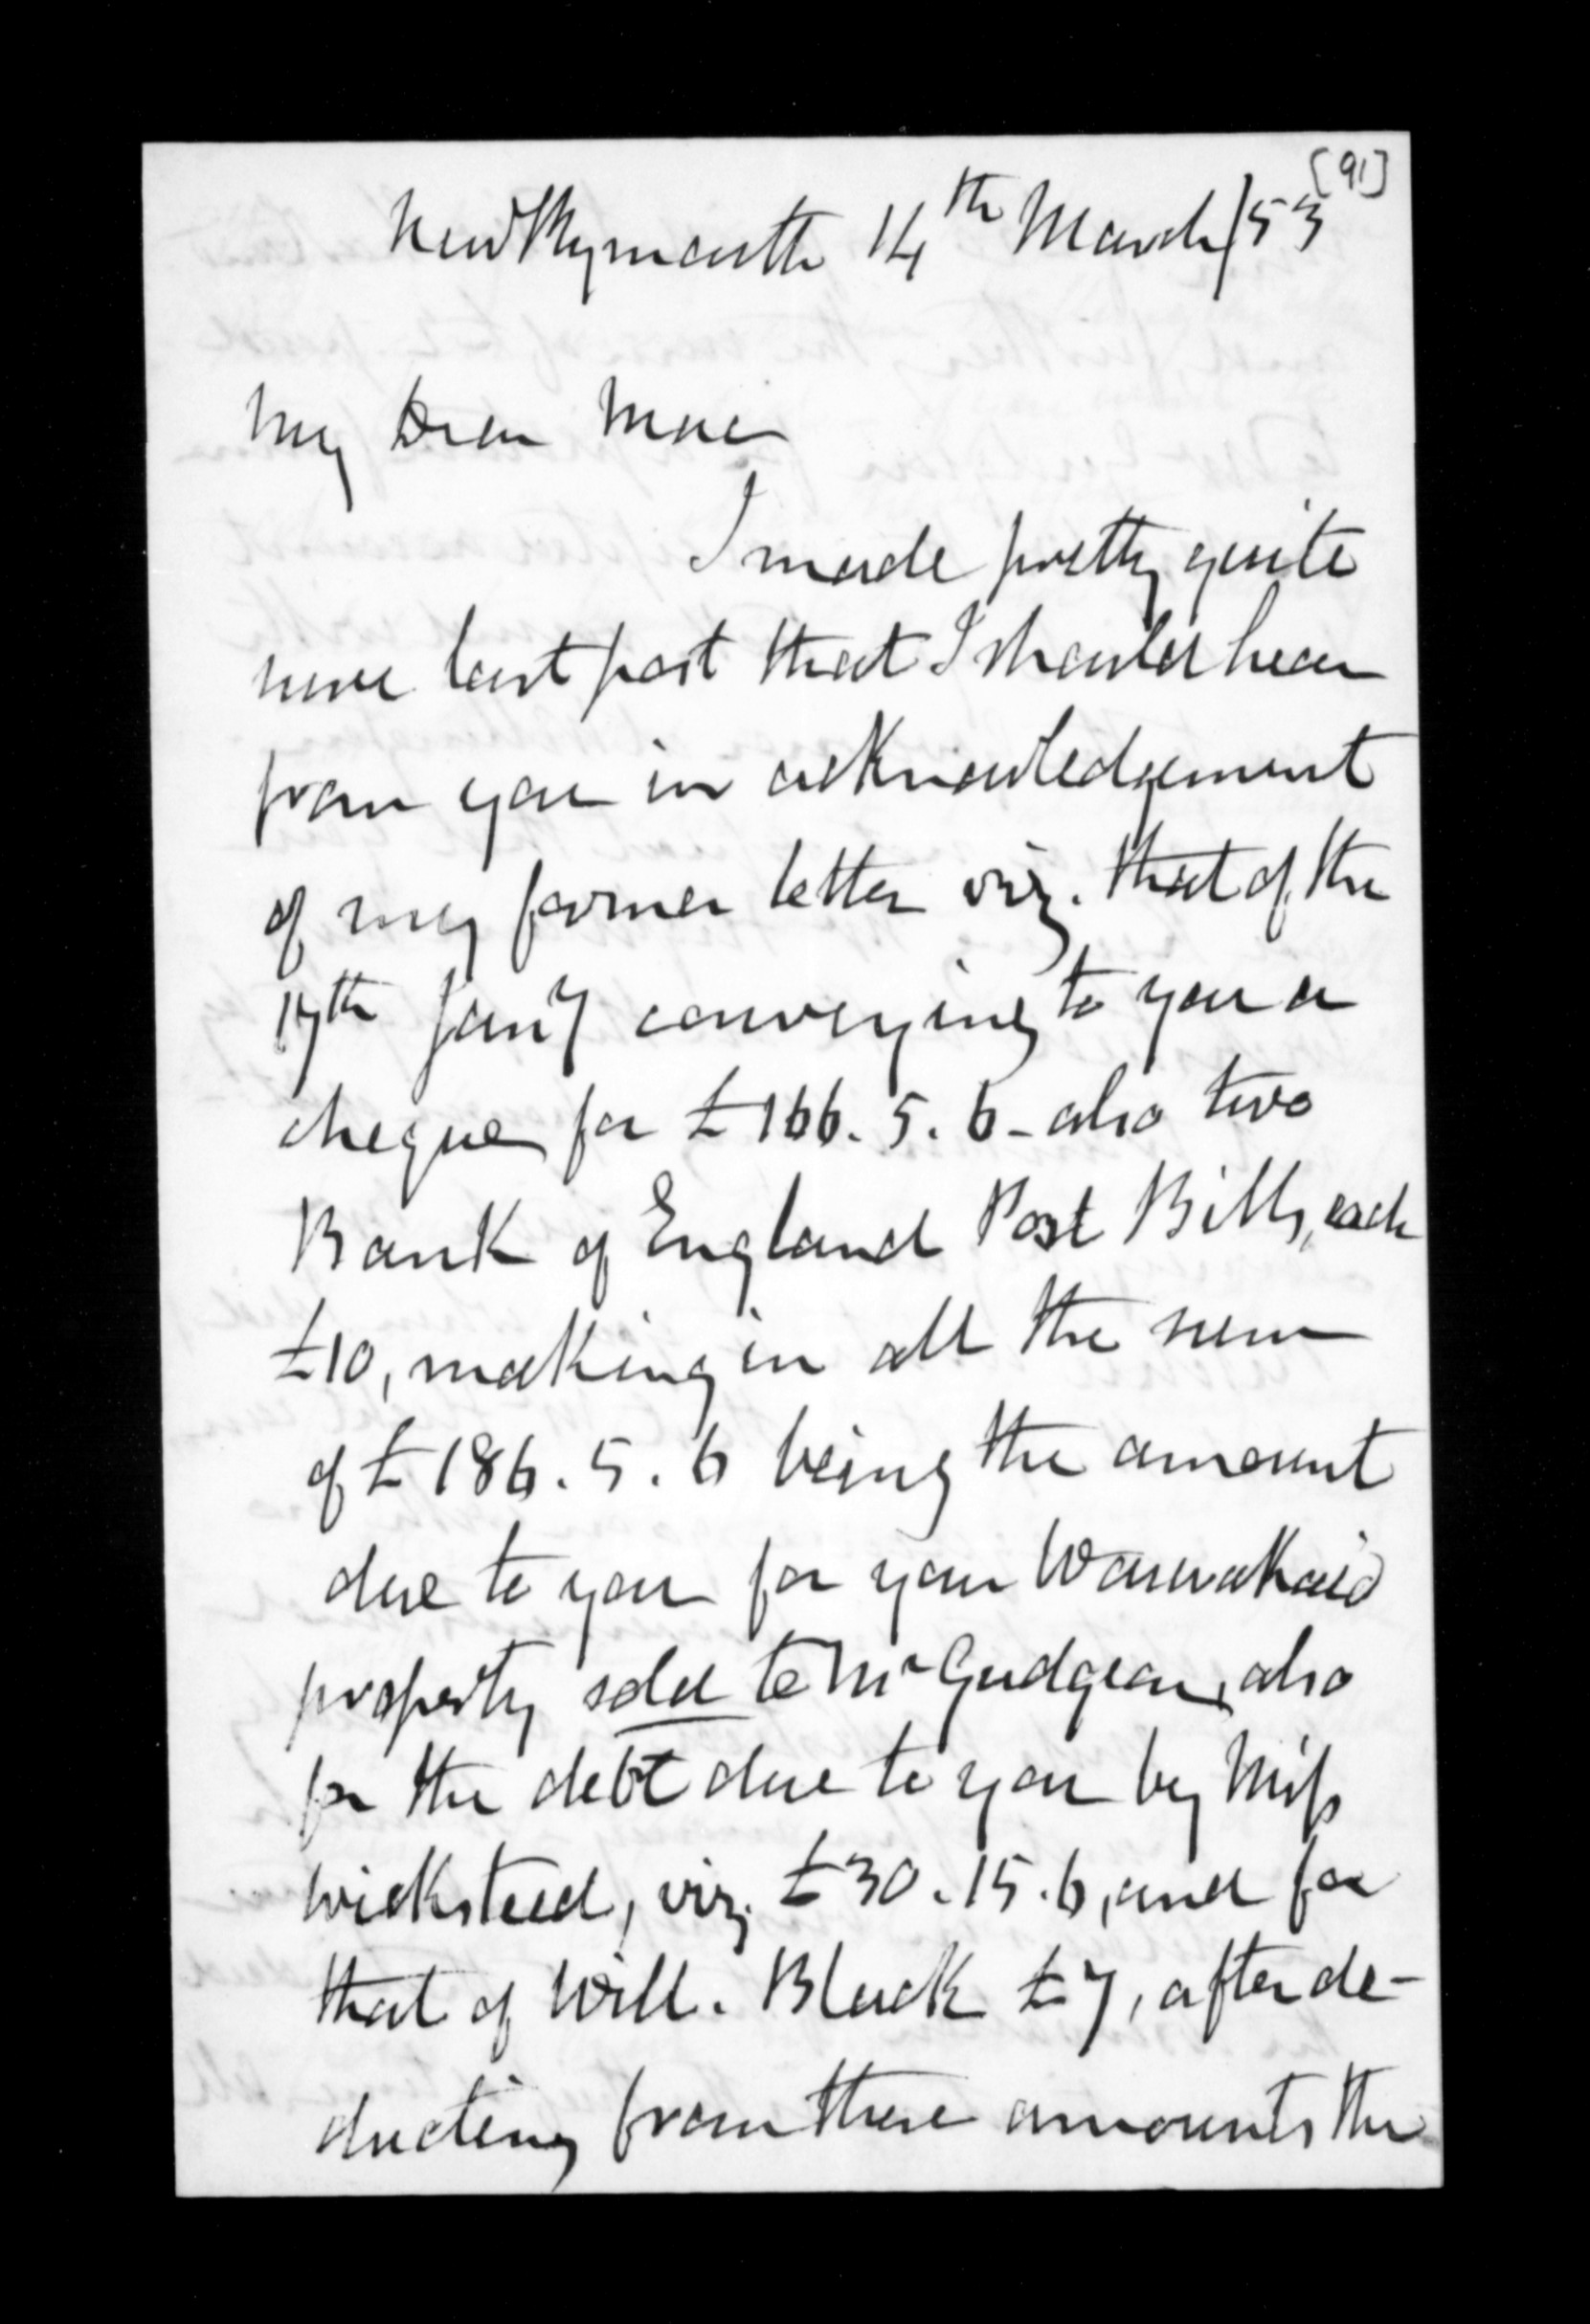 [91]
New Plymouth 14th March/53
My Dear Mac
I made pretty quite
sure last post that I should hear
from you in acknowledgement
of my former letter viz. that of the
17th Jany conveying to you a
cheque for £166. 5. 6 - also two
Bank of England Post Bills, each
£10, making in all the sum
of £186. 5. 6 being the amount
due to you for your Waiwakaio
property sold to Mr Gudgeon, also
for the debt due to you by Miss
Wicksteed, viz. £30. 15. 6, and for
that of Will. Black £7, after de-
ducting from these amounts the